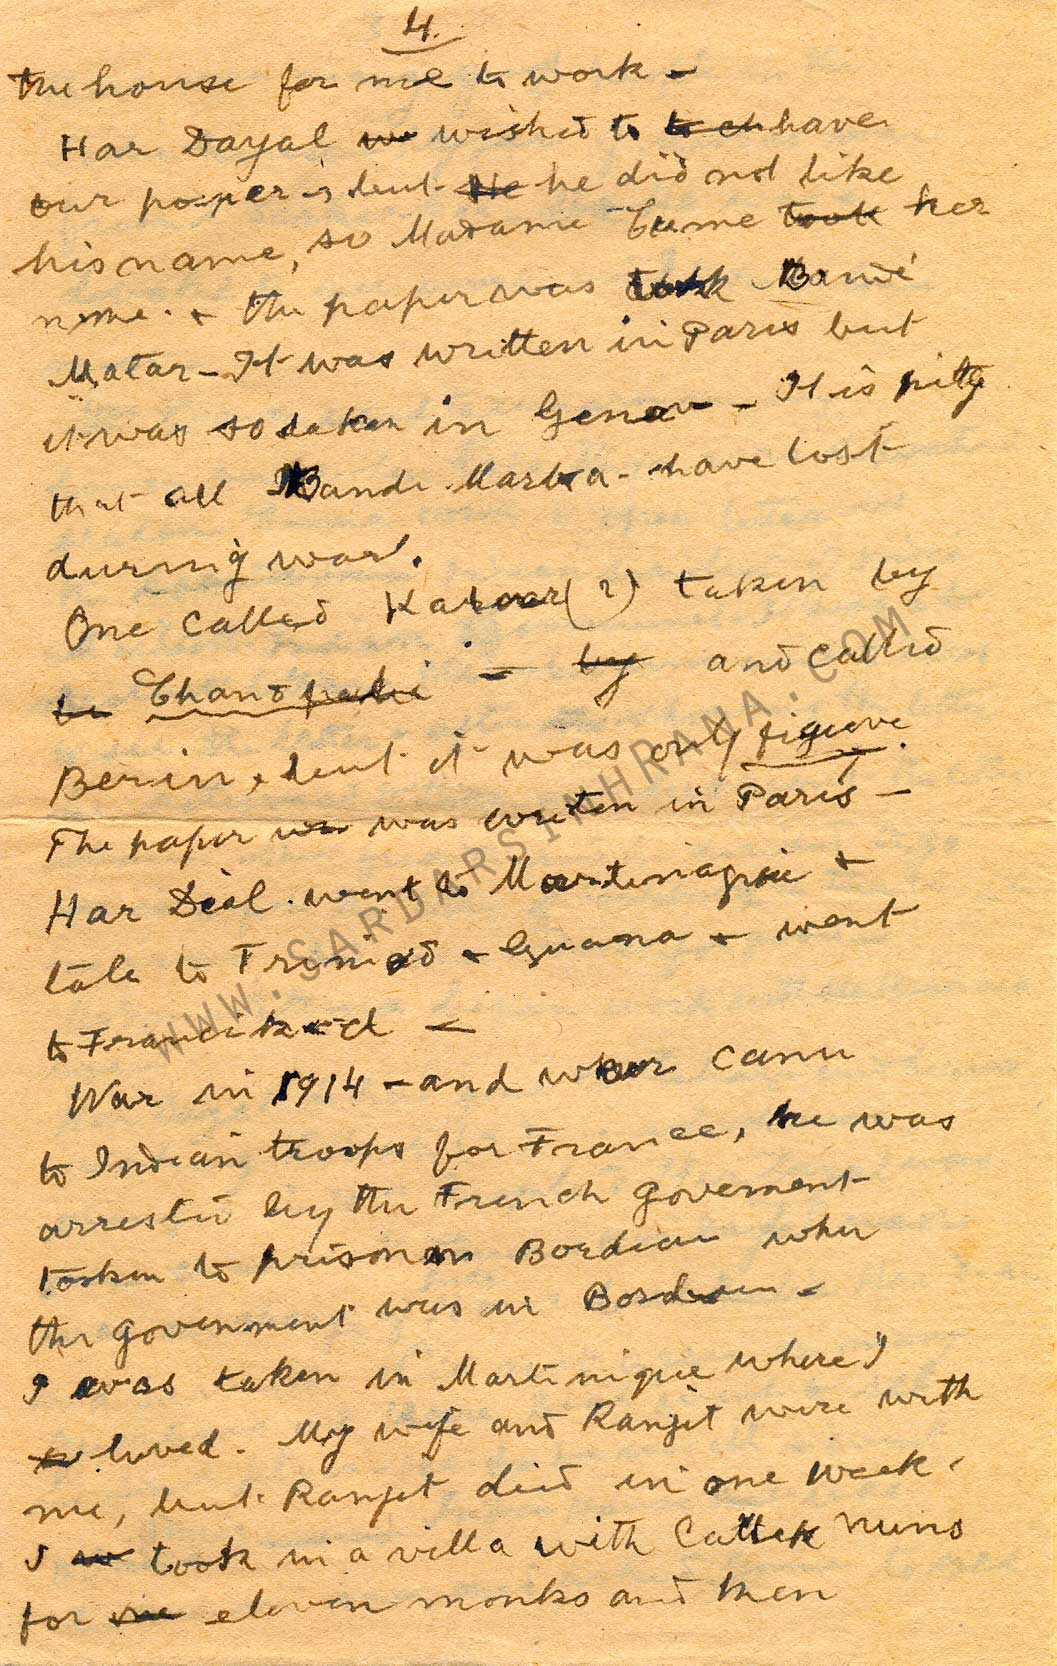 4.
the house for me to work -
Har Dayal w wished to to ch have
our paper is but He he did not like
his name, so Madame Came took her
name. & the paper was took Bande
Matar - It was written in Paris but
it was so taken in Genev - It is pitty
that all Bande Martra - have lost
during war.
One called (?) taken by
be - by and called
Berin, but it was only figuere.
The paper was written in Paris -
Har Dial. went to Martinique &
late to Trinidd & Guana & went
to
War in 1914 - and wher came
to Indian troops for France, he was
arrested by the French goverment
taken to prison in Bordeau wher
the government was in Bordeau -
I was taken in Martinique where I
lived. My wife and Ranjit were with
me, but Ranjit died in one week.
I w took in a villa with Catlik nuns
for one eleven monks and then
WWW.SARDARSINHRANA.COM